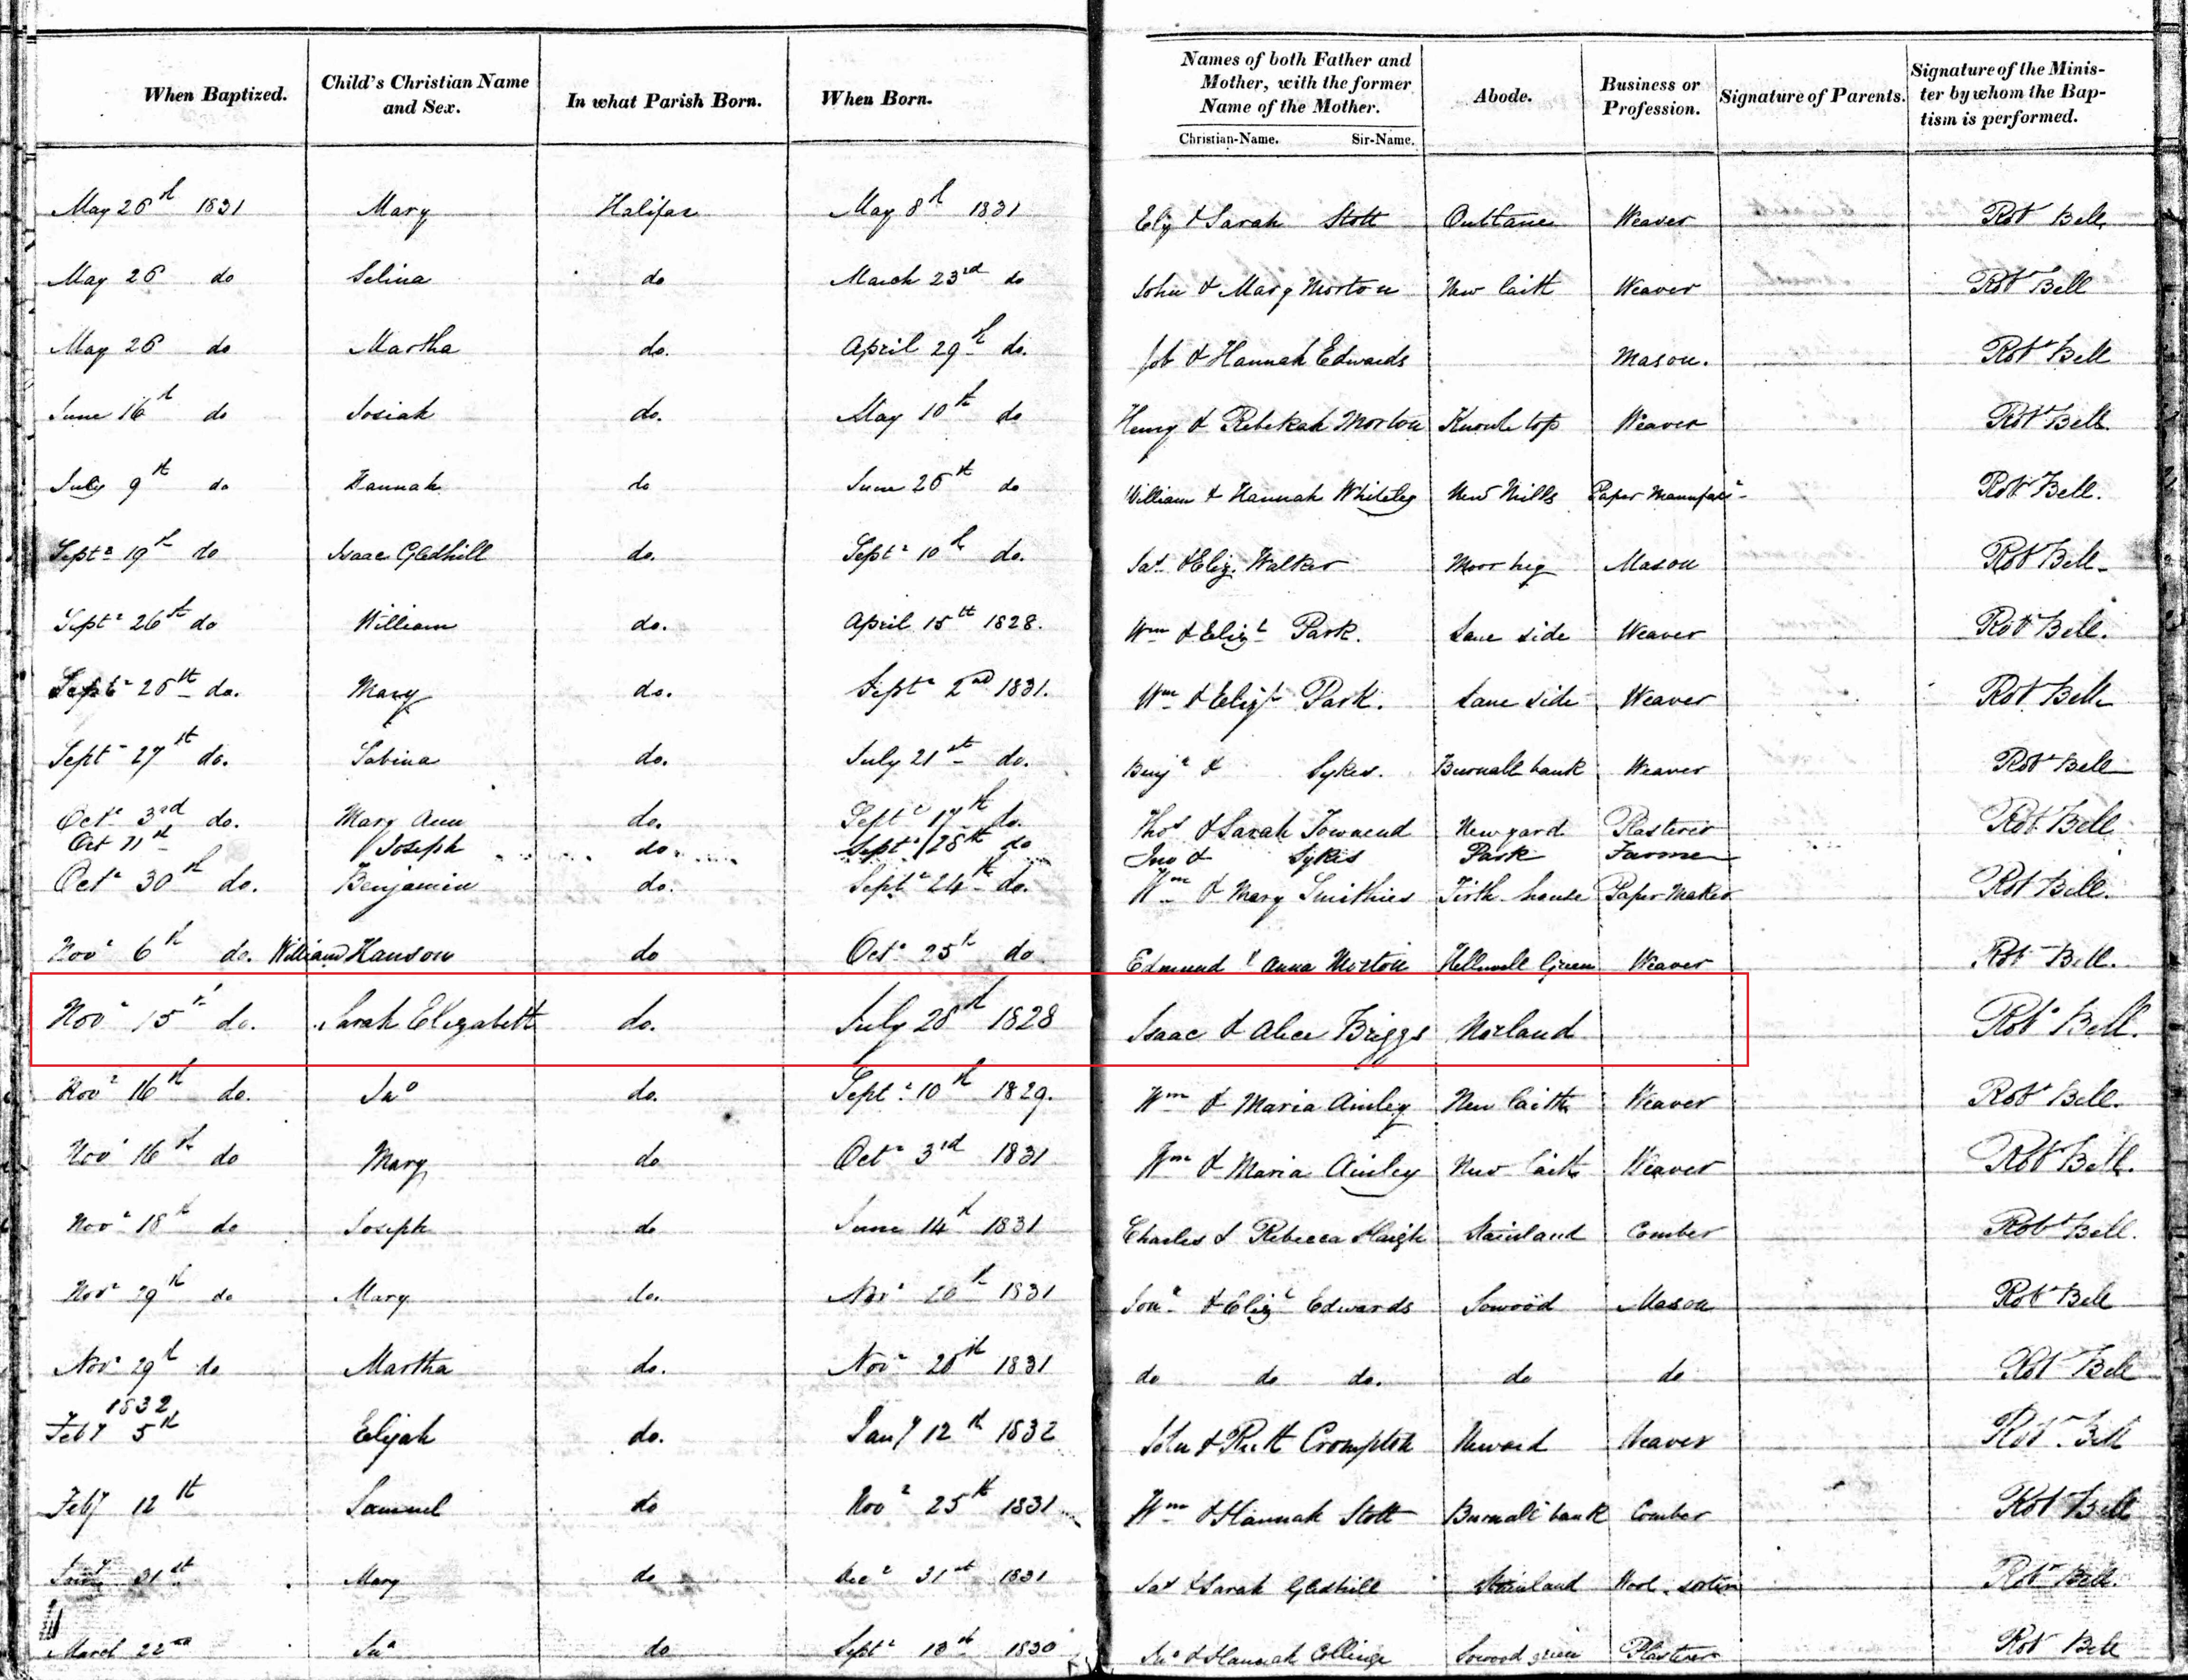 When Baptized. Child's Christian Name and Sex. In what Parish Born. When Born. Names of both Father and Mother, with the former Name of the Mother. Christian-Name. Sir-Name. Abode. Business or Profession. Signature of Parents. Signature of the Minister by whom the Baptism is performed.
May 26th 1831 Mary Halifax May 8th 1831 Elij & Sarah Stott Outlane Weaver Robt Bell
May 26 do Selina do March 23rd do John & Mary Morton New laith Weaver Robt Bell
May 26 do Martha do. April 29th do. Job & Hannah Edwards Mason. Robt Bell
June 16th do Josiah do. May 10th do Henry & Rebekah Morton Knowle top Weaver Robt Bell.
July 9th do Hannah do June 26th do William & Hannah Whiteley New Mills Paper Robt Bell.
Septr 19th do Isaac Gledhill do. Septr 10th do. Jas & Eliz. Walker Mason Robt Bell.
Septr 26th do William do. April 15th 1828. Wm & Elizt Park. Lane side Weaver Robt Bell.
Septr 26th do. Mary do. Septr 2nd 1831. Wm & Elizt Park. Lane side Weaver Robt Bell
Septr 27th do. Sabina do. July 21st do. Benjn & Sykes. Burnall bank Weaver Robt Bell
Octr 3rd do. Mary Ann do. Septr 17th do. Thos & Sarah Townend New yard Plasterer Robt Bell
Oct 11th Joseph do Septr 28th do Jno & Sykes Park Farmer
Octr 30th do. Benjamin do. Septr 24th do. Wm & Mary Smithies Firth house Paper Maker Robt Bell.
Novr 6th do. William Hanson do Octr 25th do Edmund & Anna Morton Hellewell Green Weaver Robt Bell.
Novr 15th do. Sarah Elizabeth do. July 28th 1828 Isaac & Alice Briggs Norland Robt Bell.
Novr 16th do. Jno do. Septr 10th 1829. Wm & Maria Ainley New laith Weaver Robt Bell.
Novr 16th do Mary do Octr 3rd 1831 Wm & Maria Ainley New laith Weaver Robt Bell.
Novr 18th do Joseph do June 14th 1831 Charles & Rebecca Haigh Stainland Comber Robt Bell.
Novr 29th do Mary do. Novr 20th 1831 Jonn & Elizt Edwards Sowood Mason Robt Bell
Novr 29th do Martha do. Novr 20th 1831 do do do. do do Robt Bell
1832
Feby 5th Elijah do. Jany 12th 1832 John & Ruth Crompton Weaver Robt Bell
Feby 12th Samuel do Novr 25th 1831 Wm & Hannah Stott Burnalt bank Comber Robt Bell
31st Mary do Decr 31st 1831 Jas & Sarah Gledhill Stainland Wool sorter Robt Bell.
March 22nd Jno do Septr 18th 1830 Jno & Hannah Collinge Sowood green Plasterer Robt Bell